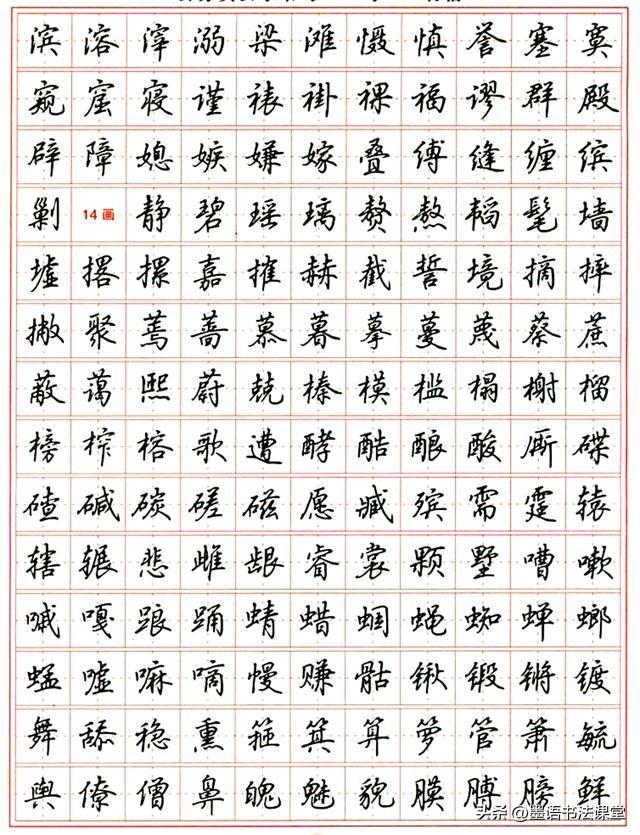 滨溶滓溺梁滩慑慎誉塞寞
窥窟寝谨裱褂裸福谬群殿
辟障媳嫉嫌嫁叠缚缝缠缤
剿14画静碧瑶璃赘熬韬髦墙
墟撂摞嘉摧赫截誓境摘摔
撇聚蔫蔷慕暮摹蔓蔑蔡蔗
蔽蔼熙蔚兢榛模槛榻榭榴
榜榨榕歌遭酵酷酿酸厮碟
碴碱碳磋磁愿臧殡需霆辕
辖辗悲雌龈睿裳颗墅嘈嗽
嘁嘎踉踊蜻蜡蝈蝇蜘蝉螂
蜢嘘嘛嘀慢赚骷锹锻锵镀
舞舔稳熏箍箕算箩管箫毓
舆僚僧鼻魄魅貌膜膊膀鲜
头条 @墨语书法课堂